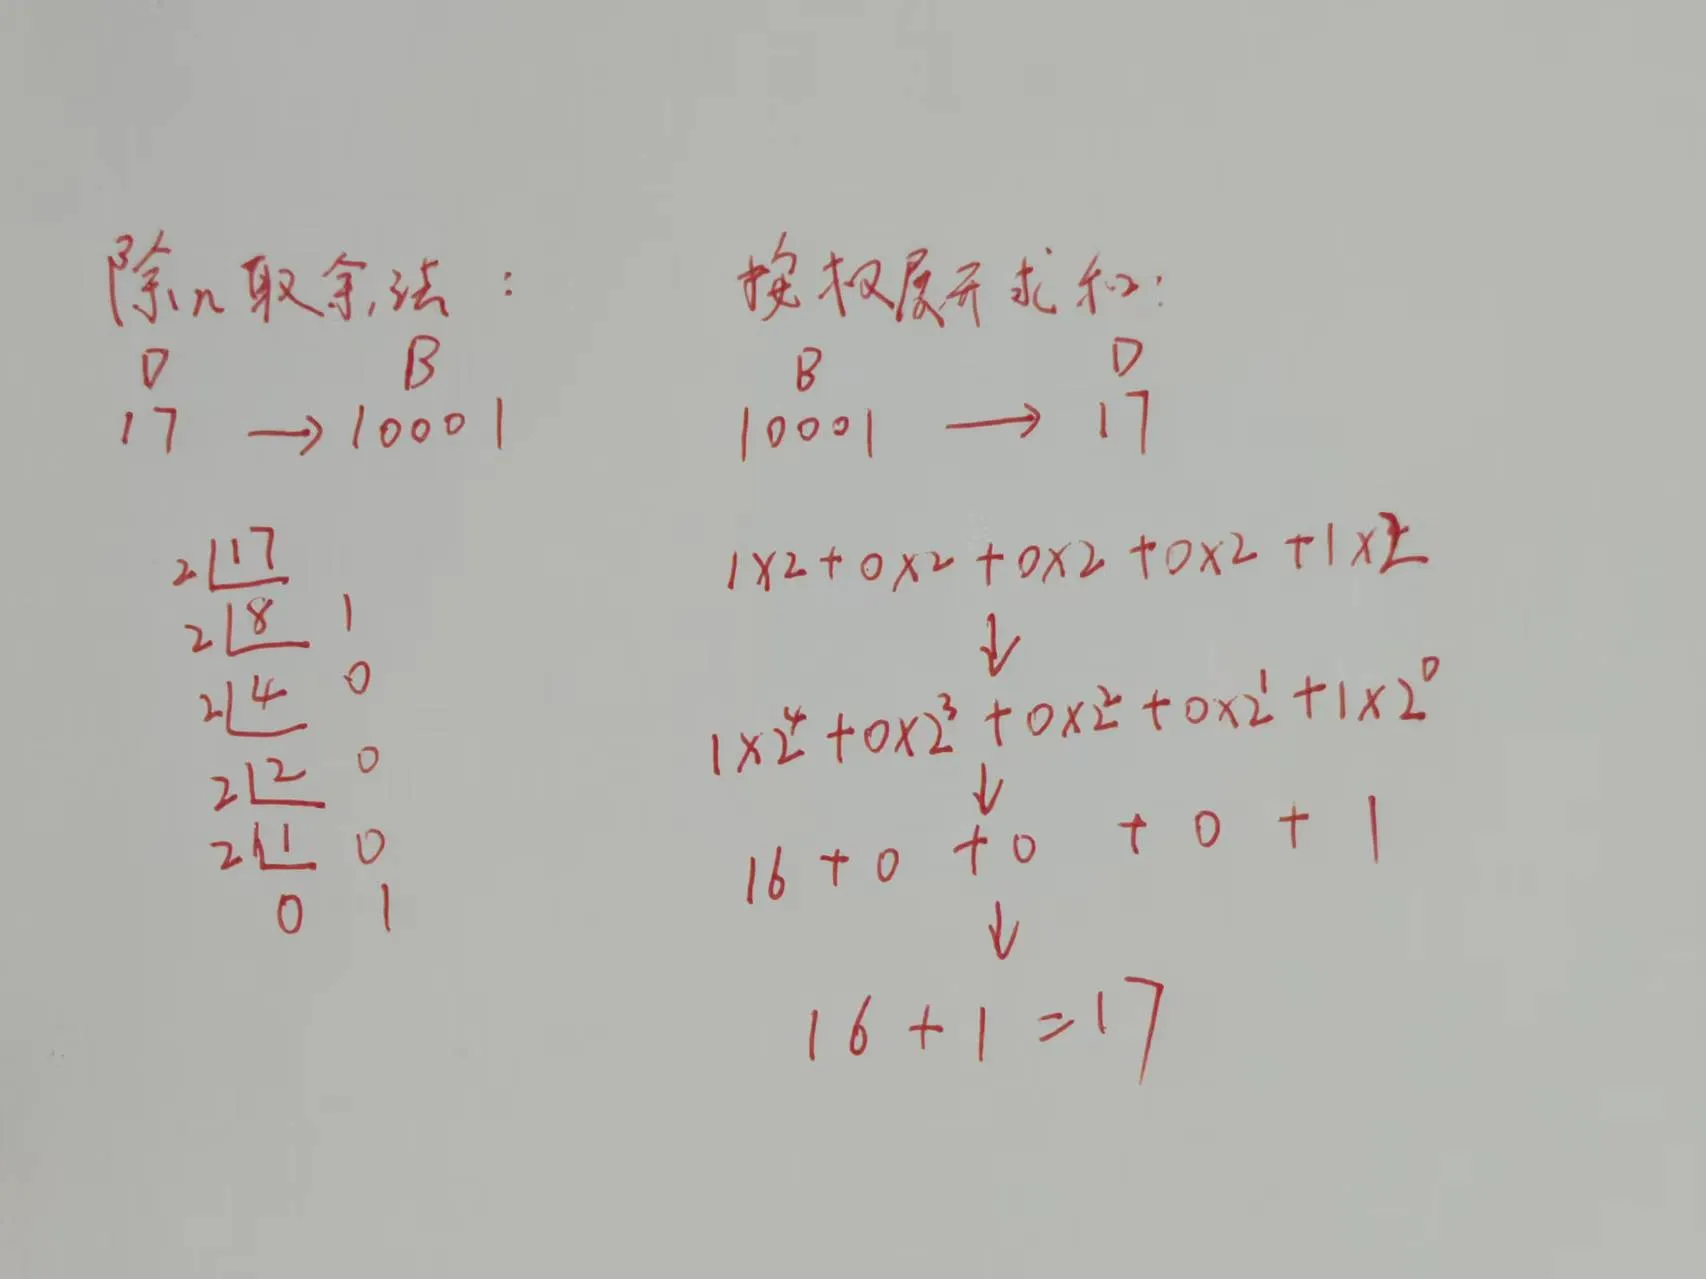 除n取余法：
D B
17 → 10001
2 17
2 8 1
2 4 0
2 2 0
2 1 0
0 1
按权展开求和：
B D
10001 → 17
1×2+0×2+0×2+0×2+1×2
↓
1×2⁴+0×2³+0×2²+0×2¹+1×2⁰
↓
16+0+0+0+1
↓
16+1=17